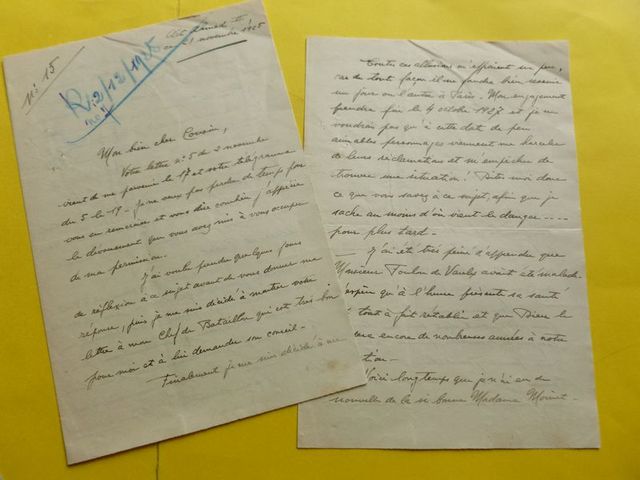 Nº 15
R. 2/12/1925
21 novembre 1925
Mon bien cher Cousin,
Votre lettre nº 5 du 2 novembre
vient de me parvenir le 17 et votre télégramme
du 5 le 17 - je ne veux pas perdre de temps pour
vous en remercier et vous dire combien j'apprécie
le dévouement que vous avez mis à vous occuper
de ma permission.
J'ai voulu prendre quelques jours
de réflexion à ce sujet avant de vous donner ma
réponse, puis je me suis décidé à montrer votre
lettre à mon Chef de Bataillon qui est très bon
pour moi et à lui demander son conseil -
Finalement je me suis décidé à ne
Toutes ces allusions m'effraient un peu,
car de tout façon il me faudra bien revenir
un jour ou l'autre à Paris. Mon engagement
prendra fin le 4 octobre 1927 et je ne
voudrais pas qu'à cette date de peu
aimables personnages viennent me harceler
de leurs réclamations et m'empêcher de
trouver une situation! Dites moi donc
ce que vous savez à ce sujet, afin que je
sache au moins d'où vient le danger ----
pour plus tard -
J'ai été très peiné d'apprendre que
Monsieur Toulon de Vauly avait été malade.
espère qu'à l'heure présente sa santé
tout à fait rétablie et que Dieu le
encore de nombreuses années à notre
Voici longtemps que je n'ai eu de
nouvelles de la si bonne Madame